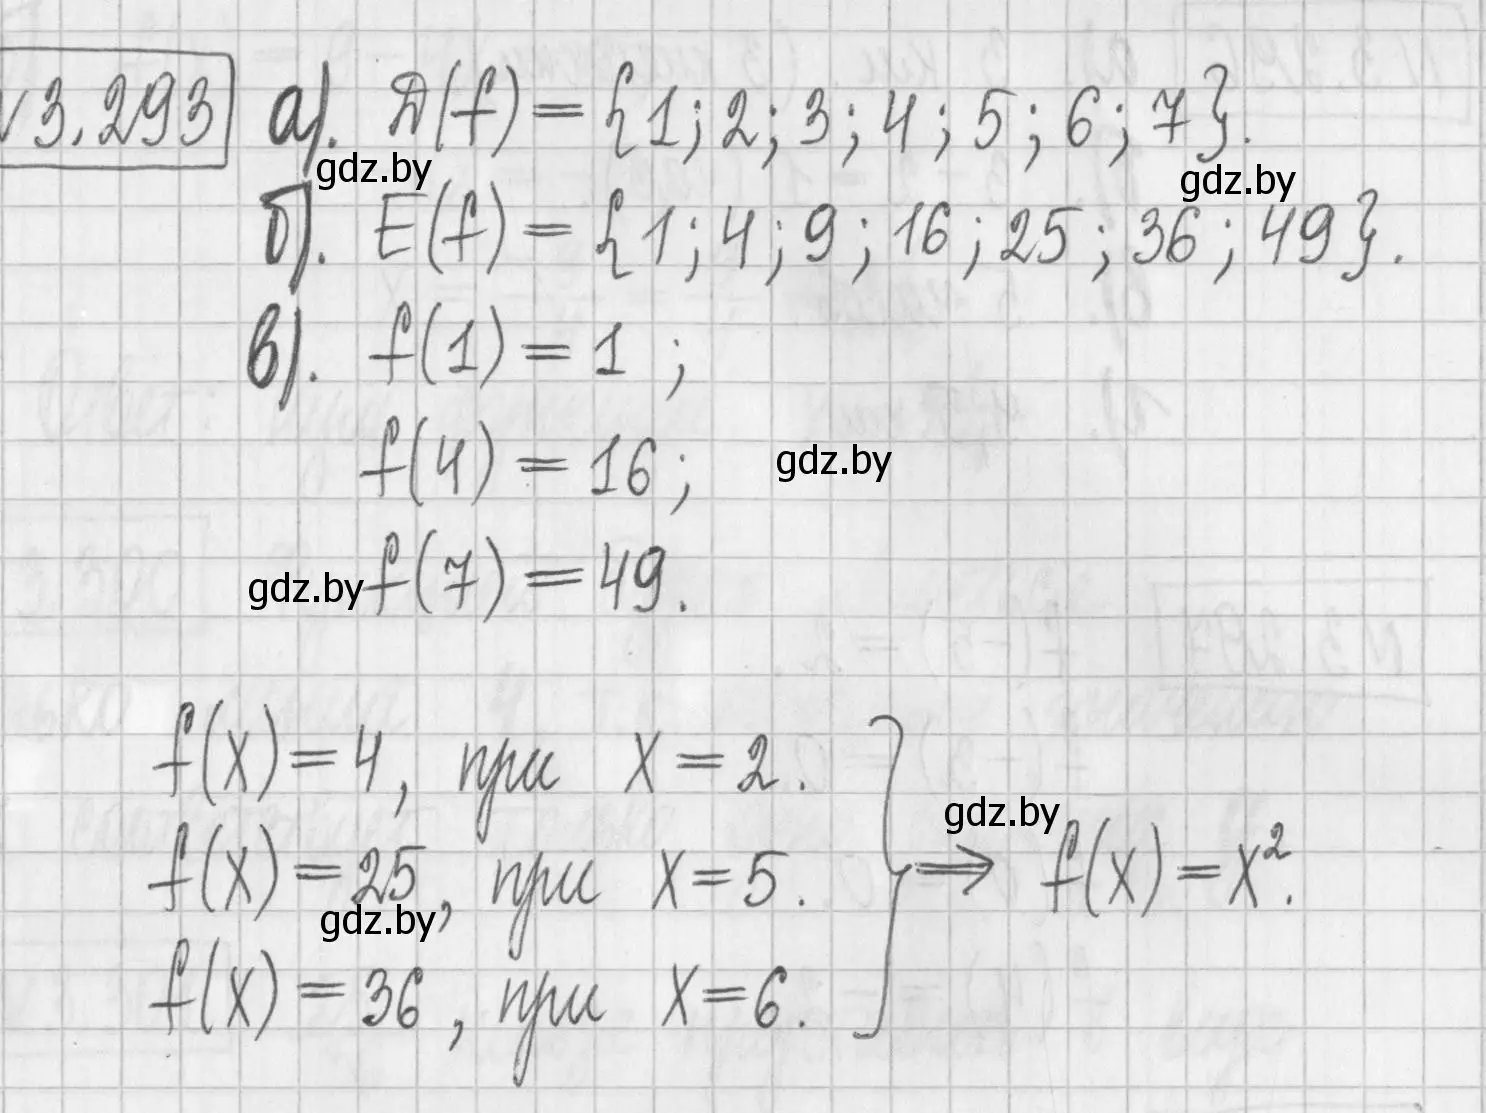 №3.293 а). D(f) = {1; 2; 3; 4; 5; 6; 7}.
gdz.by gdz.by
б). E(f) = {1; 4; 9; 16; 25; 36; 49}.
в). f(1) = 1 ;
f(4) = 16; gdz.by
gdz.by f(7) = 49.
f(x) = 4, при x = 2.
gdz.by
f(x) = 25, при x = 5. ⟹ f(x) = x².
gdz.by
f(x) = 36, при x = 6.